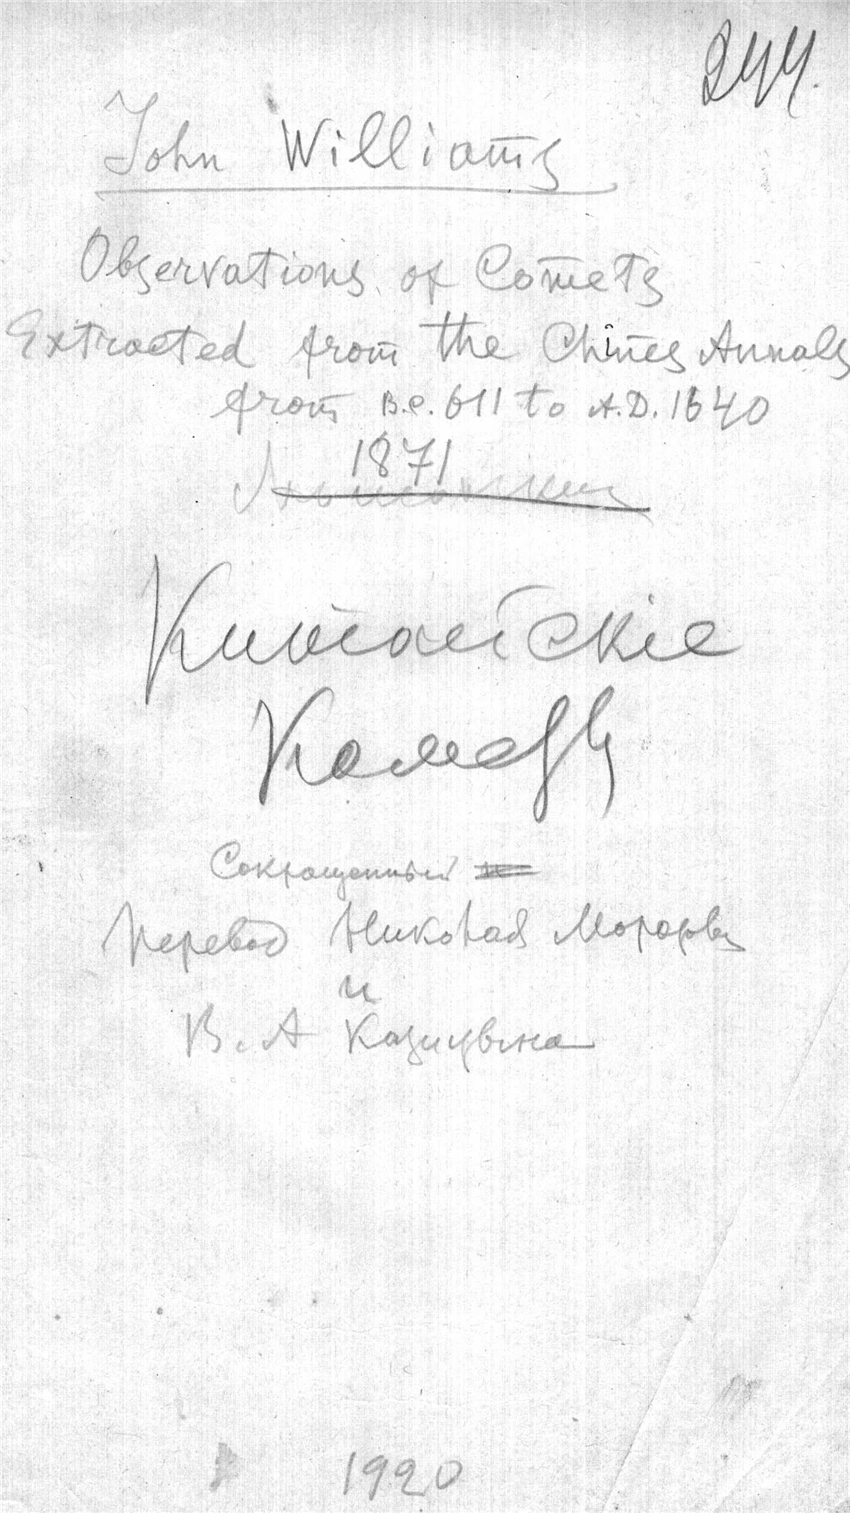 244.
John Williams
Observations of Comets
Extracted from the Chines Annals
from B.C. 611 to A.D. 1640
1871
Китайскіе
Кометы
Сокращенный
Переводъ Николая Морозова
и
В. А Казицына
1920